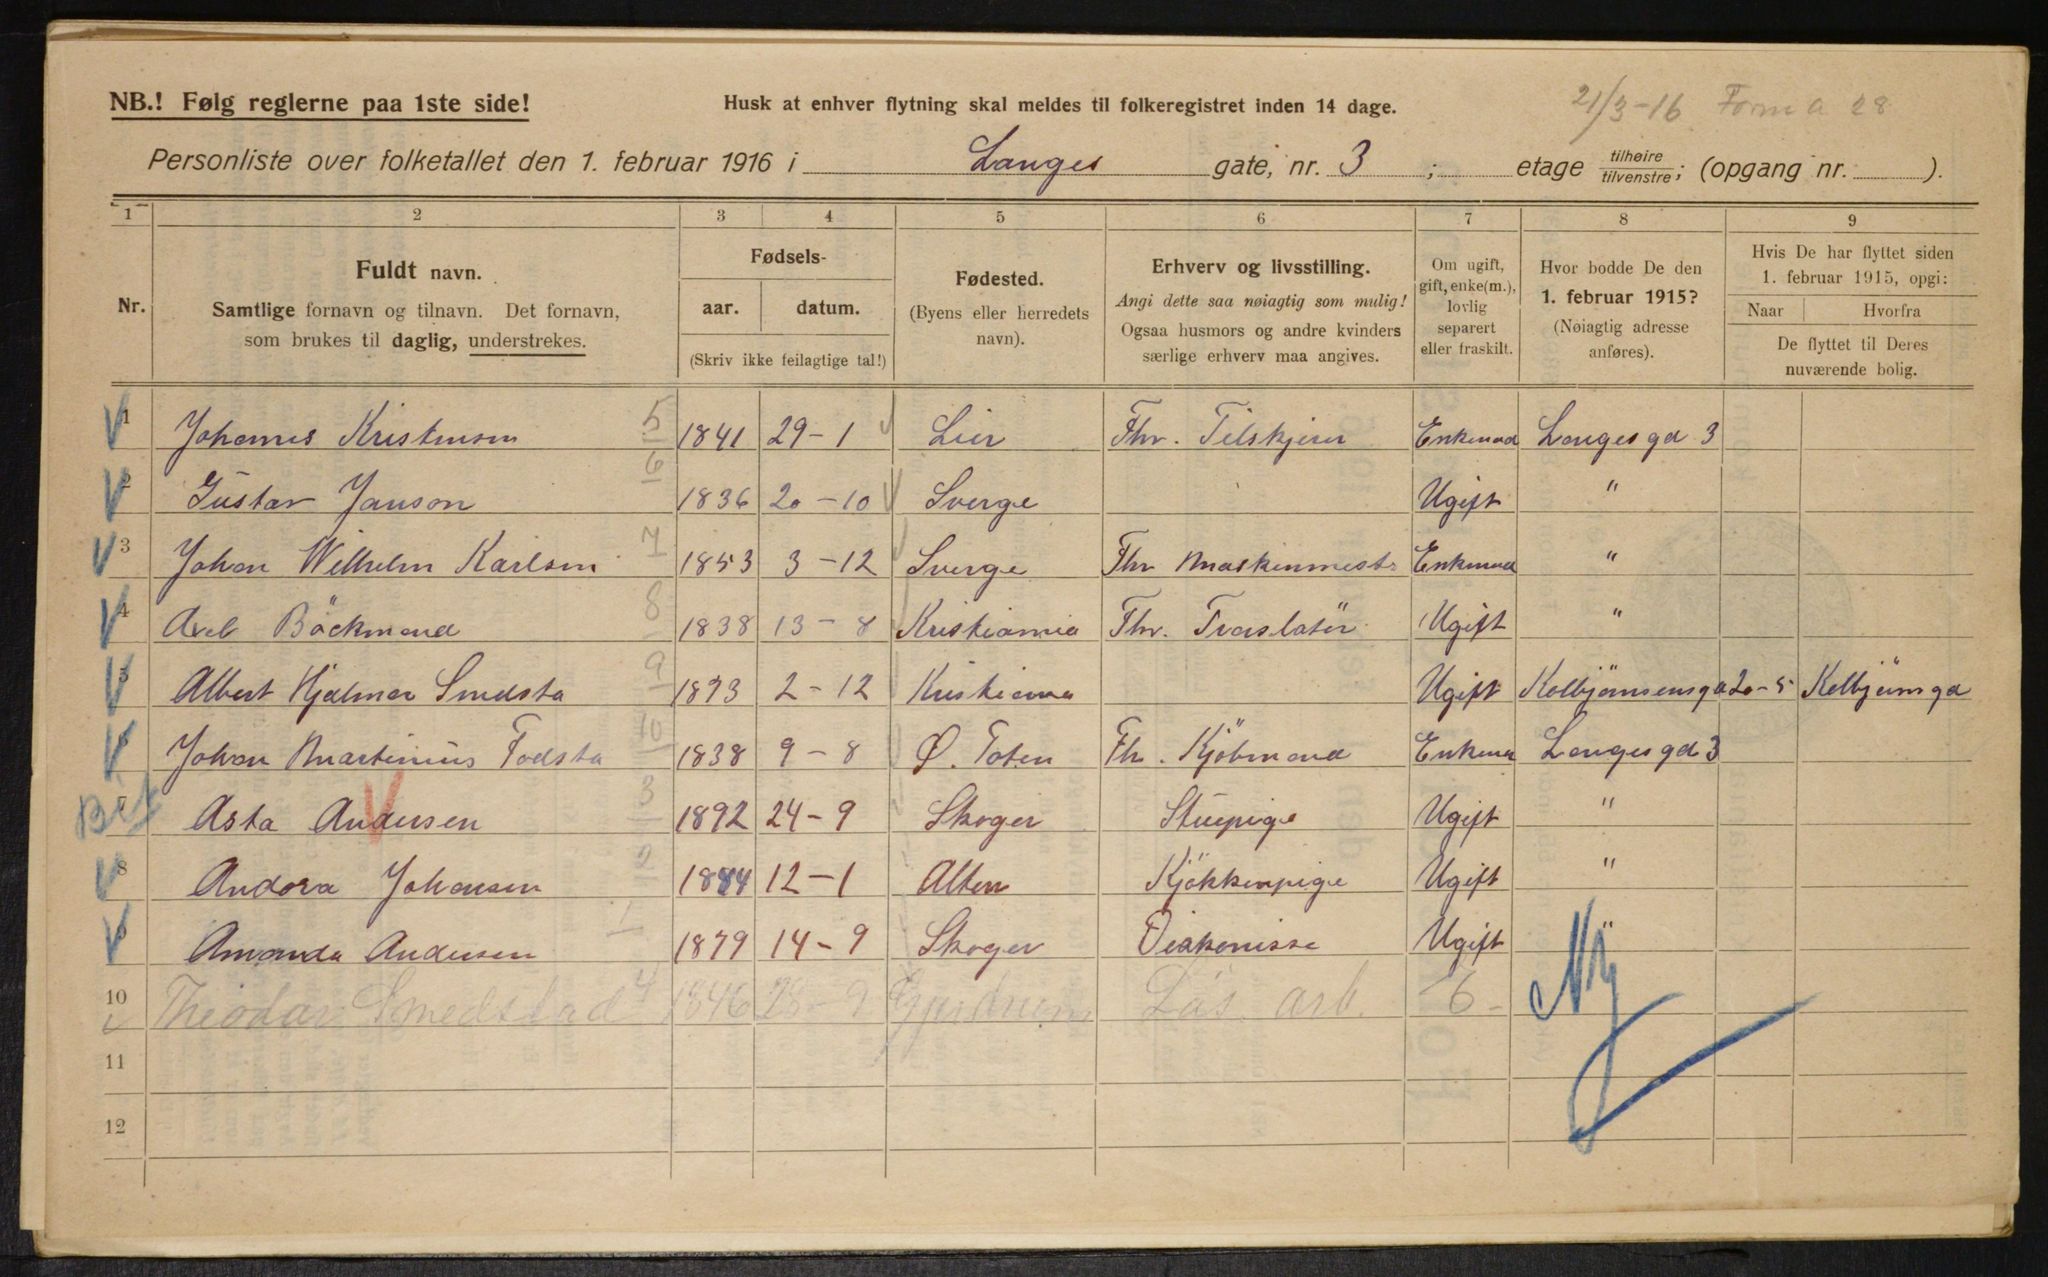 NB.! Følg reglerne paa 1ste side!
Husk at enhver flytning skal meldes til folkeregistret inden 14 dage.
21/3-16 Form a 28
Personliste over folketallet den 1. februar 1916 i Langes gate, nr. 3 ; etage tilhøire tilvenstre; (opgang nr. ).
1 2 3 4 5 6 7 8 9
Nr.
Fuldt navn.
Samtlige fornavn og tilnavn. Det fornavn,
som brukes til daglig, understrekes.
Fødsels-
aar. datum.
(Skriv ikke feilagtige tal!)
Fødested.
(Byens eller herredets
navn).
Erhverv og livsstilling.
Angi dette saa nøiagtig som mulig!
Ogsaa husmors og andre kvinders
særlige erhverv maa angives.
Om ugift,
gift, enke(m.),
lovlig
separert
eller fraskilt.
Hvor bodde De den
1. februar 1915?
(Nøiagtig adresse
anføres).
Hvis De har flyttet siden
1. februar 1915, opgi:
Naar Hvorfra
De flyttet til Deres
nuværende bolig.
1 Johannes Kristensen 5 1841 29-1 Lier Fhv. Tilskjærer Enkmand Langes gd 3
2 Gustav Janson 6 1836 20-10 Sverge Ugift "
3 Johan Wilhelm Karlsen 7 1853 3-12 Sverge Fhv Maskinmestr Enkmand "
4 Axel Böckmand 8 1838 13-8 Kristiania Fhv. Traslatör Ugift "
5 Albert Hjalmar Smedsta 9 1873 2-12 Kristiania Ugift Kolbjörnsensgd 20-5 Kolbjörnsgd
6 Johan Martinius Fodsta 10 1838 9-8 Ø. Toten Fh. Kjöbmand Enkman Langes gd 3
7 Asta Andersen 3 1892 24-9 Skoger Stuepige Ugift "
8 Andora Johansen 2 1884 12-1 Alten Kjökkenpige Ugift "
9 Amanda Andersen 1 1879 14-9 Skoger Deakonisse Ugift "
10 Theodor Smedstad 4 1846 28-9 Gjerdrum Løs arb. E- Ny
11
12